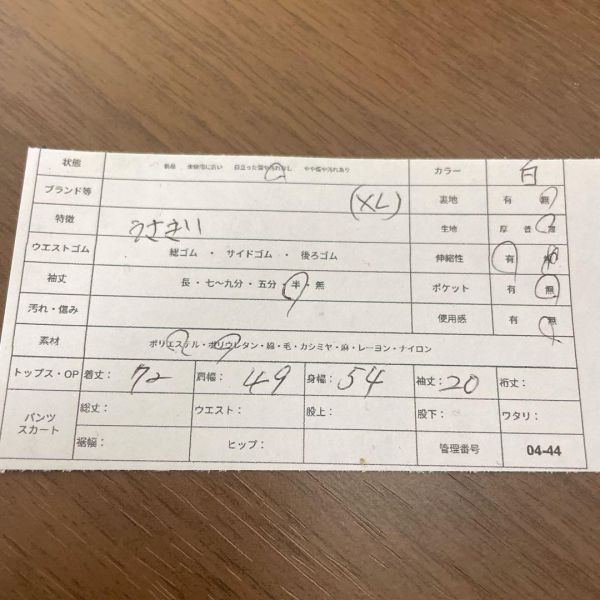 状態 新品 未使用に近い 目立った傷や汚れなし やや傷や汚れあり カラー 白
ブランド等 (XL) 裏地 有 無
特徴 うさぎい 生地 厚 普 薄
ウエストゴム 総ゴム ・ サイドゴム ・ 後ろゴム 伸縮性 有 無
袖丈 長・七〜九分・五分・半・無 ポケット 有 無
汚れ・傷み 使用感 有 無
素材 ポリエステル・ポリウレタン・綿・毛・カシミヤ・麻・レーヨン・ナイロン
トップス・OP 着丈: 72 肩幅: 49 身幅: 54 袖丈: 20 裄丈:
パンツ スカート 総丈: ウエスト: 股上: 股下: ワタリ:
裾幅: ヒップ: 管理番号 04-44